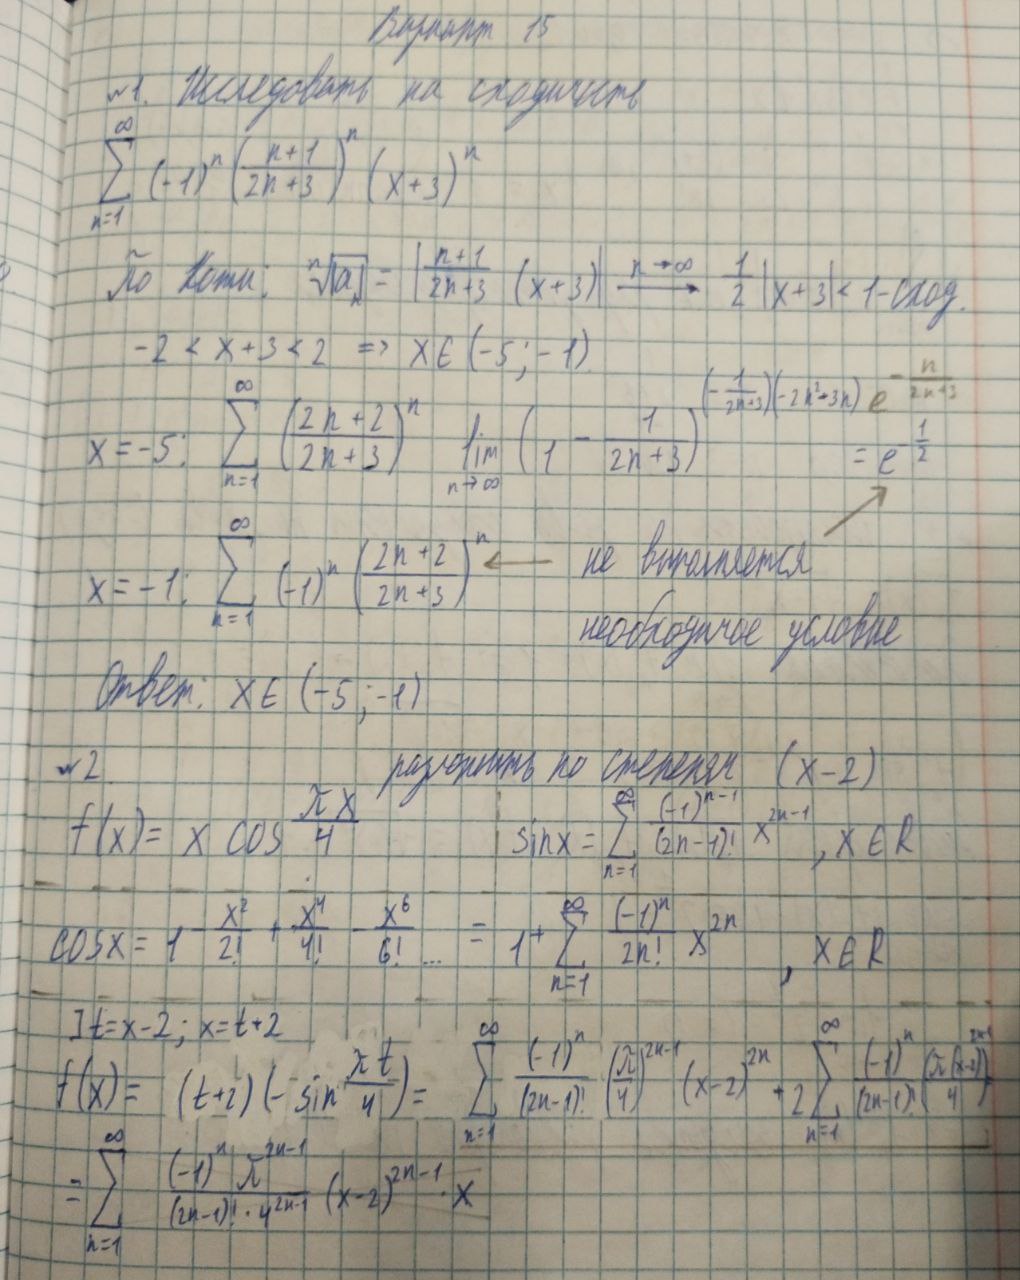 Вариант 15
№1. Исследовать на сходимость
∑_{n=1}^{∞} (-1)^n ((n+1)/(2n+3))^n (x+3)^n
По Коши: ⁿ√|aₙ| = |(n+1)/(2n+3) (x+3)| →^{n→∞} 1/2 |x+3| < 1 - сход.
-2 < x+3 < 2 => x∈(-5; -1)
x=-5: ∑_{n=1}^{∞} ((2n+2)/(2n+3))^n lim_{n→∞} (1 - 1/(2n+3))^{(-1/(2n+3))(-2n²+3n)} e^{-n/(2n+3)} = e^{-1/2}
x=-1: ∑_{n=1}^{∞} (-1)^n ((2n+2)/(2n+3))^n ← не выполняется
необходимое условие
Ответ: x∈(-5; -1)
№2. разложить по степеням (x-2)
f(x)= x cos πx/4 sinx = ∑_{n=1}^{∞} (-1)^{n-1}/(2n-1)! x^{2n-1}, x∈R
cosx = 1 - x²/2! + x⁴/4! - x⁶/6! ... = 1 + ∑_{n=1}^{∞} (-1)^n/2n! x^{2n}, x∈R
] t=x-2; x=t+2
f(x)= (t+2)(-sin πt/4) = ∑_{n=1}^{∞} (-1)^n/(2n-1)! (π/4)^{2n-1} (x-2)^{2n} + 2∑_{n=1}^{∞} (-1)^n/(2n-1)! (π(x-2)/4)^{2n-1}
= ∑_{n=1}^{∞} (-1)^n π^{2n-1}/((2n-1)! · 4^{2n-1}) (x-2)^{2n-1} · x